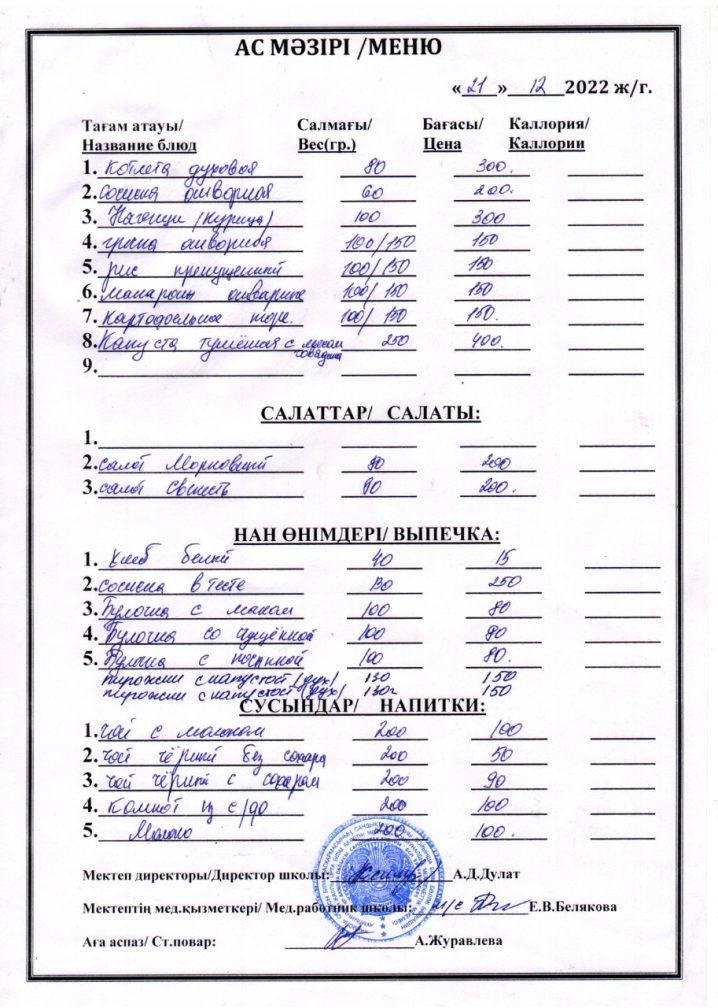 АС МӘЗІРІ /МЕНЮ
«21» 12 2022 ж/г.
Тағам атауы/ Салмағы/ Бағасы/ Каллория/
Название блюд Вес(гр.) Цена Каллории
1. Котлета духовая 80 300.
2. Сосиска отворная 60 200.
3. Нагенцы (курица) 100 300
4. греча отворная 100/150 150
5. рис припущенный 100/150 150
6. макароны отварные 100/150 150
7. Картофельное пюре. 100/150 150.
8. Капуста тушёная с мясом 250 400.
говядина
9.
САЛАТТАР/ САЛАТЫ:
1.
2. салат Морковный 90 200
3. салат Свежесть 90 200.
НАН ӨНІМДЕРІ/ ВЫПЕЧКА:
1. Хлеб белый 40 15
2. сосиска в тесте 130 250
3. Булочка с маком 100 80
4. Булочка со сгущёнкой 100 90
5. Булочка с начинкой 100 80.
пирожки с капустой (дух) 130 150
пирожки с капустой (дух) 130г 150
СУСЫНДАР/ НАПИТКИ:
1. Чай с молоком 200 100
2. Чай чёрный без сахара 200 50
3. Чай чёрный с сахаром 200 90
4. Компот из с/фр 200 100
5. Молоко 200 100.
Мектеп директоры/Директор школы: А.Д.Дулат
Мектептің мед.қызметкері/ Мед.работник школы: м/с Е.В.Белякова
Аға аспаз/ Ст.повар: А.Журавлева